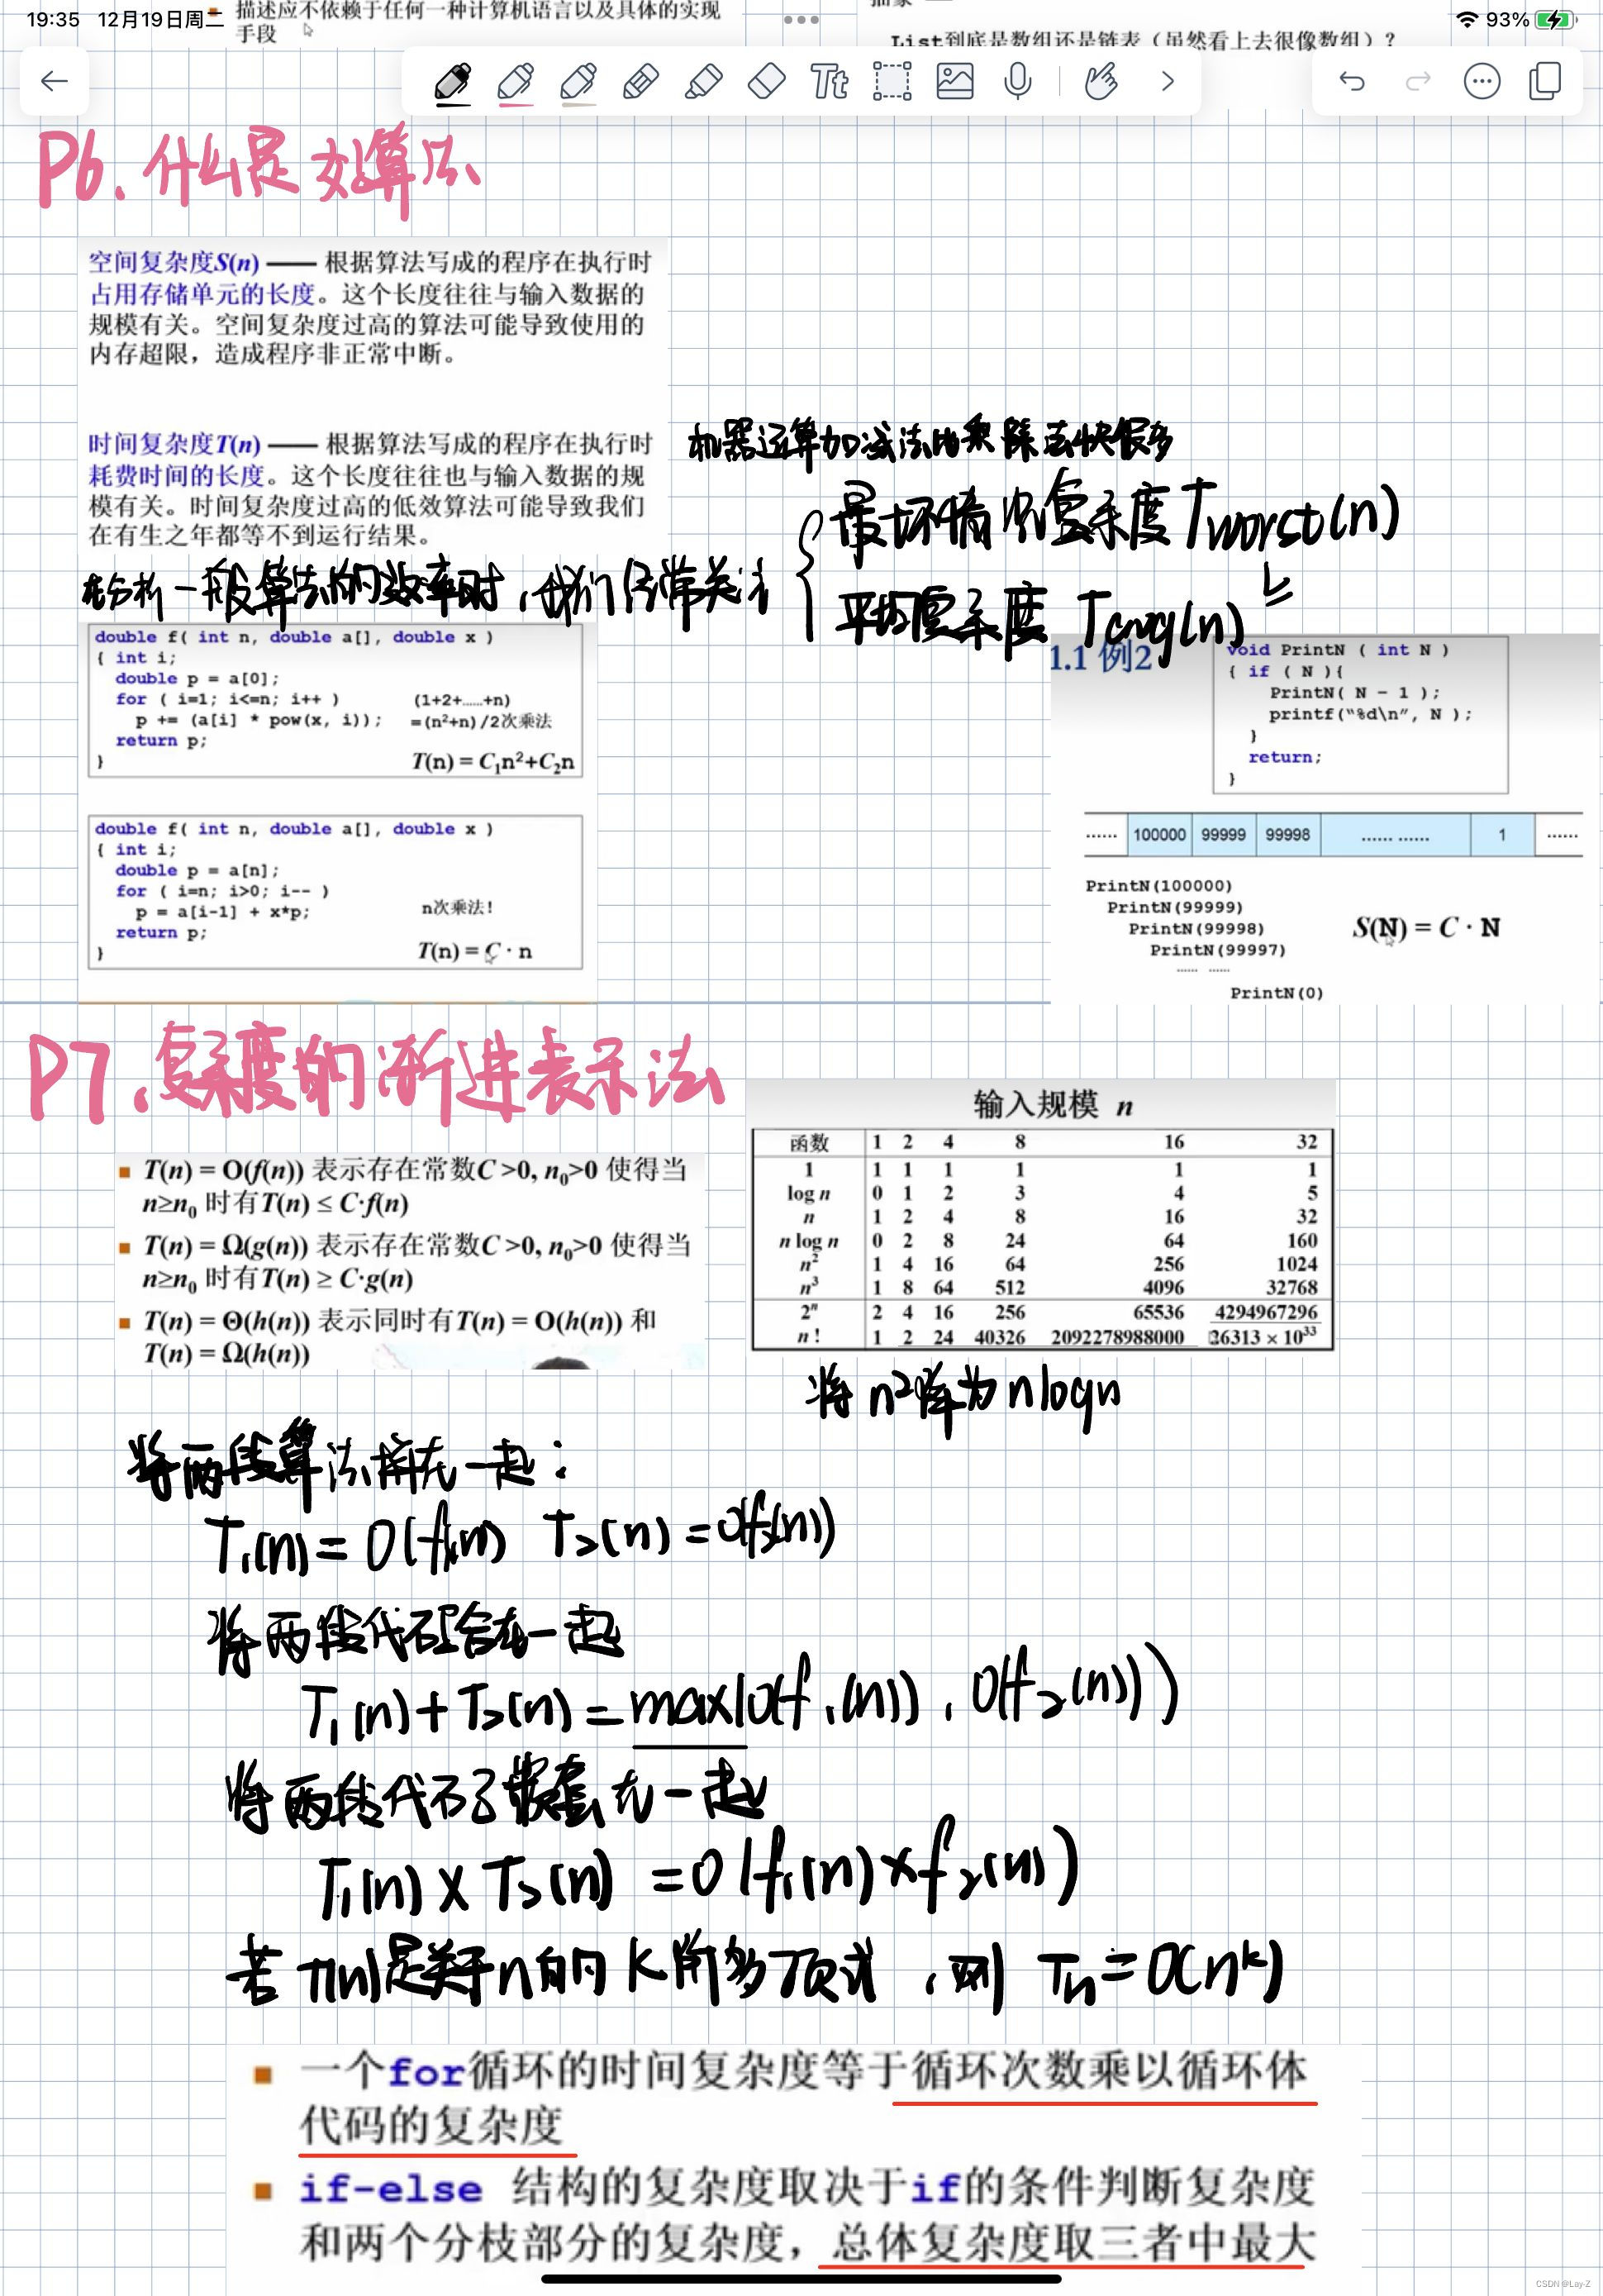 19:35 12月19日周二
93%
描述应不依赖于任何一种计算机语言以及具体的实现
手段
List到底是数组还是链表（虽然看上去很像数组）？
Tt
P6.什么是好算法
空间复杂度S(n) —— 根据算法写成的程序在执行时
占用存储单元的长度。这个长度往往与输入数据的
规模有关。空间复杂度过高的算法可能导致使用的
内存超限，造成程序非正常中断。
时间复杂度T(n) —— 根据算法写成的程序在执行时
耗费时间的长度。这个长度往往也与输入数据的规
模有关。时间复杂度过高的低效算法可能导致我们
在有生之年都等不到运行结果。
机器运算加减法比乘除法快很多
在分析一般算法的效率时，我们经常关注
最坏情况复杂度 Tworst(n)
平均复杂度 Tavg(n)
double f( int n, double a[], double x )
{ int i;
double p = a[0];
for ( i=1; i<=n; i++ )
p += (a[i] * pow(x, i));
return p;
}
(1+2+......+n)
=(n²+n)/2次乘法
T(n) = C₁n²+C₂n
double f( int n, double a[], double x )
{ int i;
double p = a[n];
for ( i=n; i>0; i-- )
p = a[i-1] + x*p;
return p;
}
n次乘法！
T(n) = C · n
1.1 例2
void PrintN ( int N )
{ if ( N ){
PrintN( N - 1 );
printf("%d\n", N );
}
return;
}
...... 100000 99999 99998 ...... ...... 1 ......
PrintN(100000)
PrintN(99999)
PrintN(99998)
PrintN(99997)
...... ......
PrintN(0)
S(N) = C · N
P7.复杂度的渐进表示法
T(n) = O(f(n)) 表示存在常数C >0, n₀>0 使得当
n≥n₀ 时有T(n) ≤ C·f(n)
T(n) = Ω(g(n)) 表示存在常数C >0, n₀>0 使得当
n≥n₀ 时有T(n) ≥ C·g(n)
T(n) = Θ(h(n)) 表示同时有T(n) = O(h(n)) 和
T(n) = Ω(h(n))
输入规模 n
函数 1 2 4 8 16 32
1 1 1 1 1 1 1
log n 0 1 2 3 4 5
n 1 2 4 8 16 32
n log n 0 2 8 24 64 160
n² 1 4 16 64 256 1024
n³ 1 8 64 512 4096 32768
2ⁿ 2 4 16 256 65536 4294967296
n ! 1 2 24 40326 2092278988000 26313 × 10³³
将n²降为nlogn
将两段算法拼在一起：
T₁(n)=O(f₁(n) T₂(n)=O(f₂(n))
将两段代码合在一起
T₁(n)+T₂(n)=max(O(f₁(n)),O(f₂(n)))
将两段代码嵌套在一起
T₁(n)×T₂(n) =O(f₁(n)×f₂(n))
若T(n)是关于n的K阶多项式，则 Tn=O(nᵏ)
一个for循环的时间复杂度等于循环次数乘以循环体
代码的复杂度
if-else 结构的复杂度取决于if的条件判断复杂度
和两个分枝部分的复杂度，总体复杂度取三者中最大
CSDN @Lay-Z